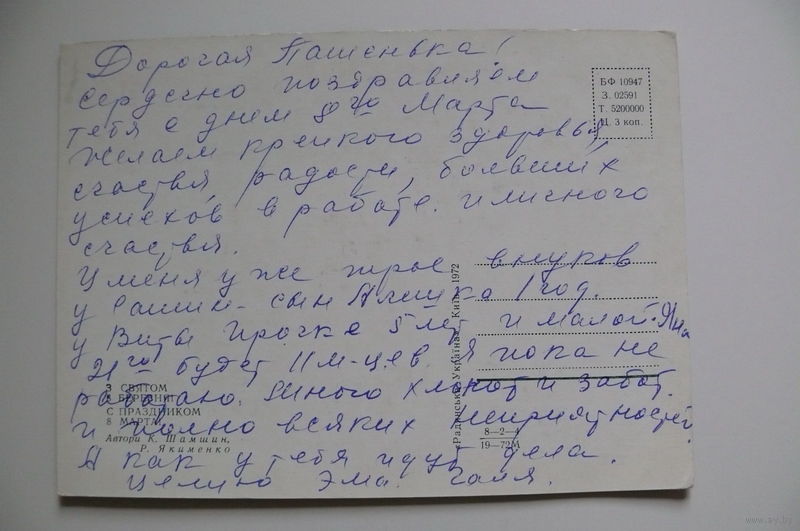 Дорогая Пашенька!
Сердечно поздравляем
тебя с днем 8го Марта
Желаем крепкого здоровья,
счастья, радости, больших
успехов в работе. и личного
счастья.
У меня уже трое внуков
у сын 1 год.
у Виты Ирочке 5 лет и малой. Яна
21го будет 11 м-цев. Я пока не
работаю. Много хлопот и забот.
и полно всяких неприятностей.
А как у тебя идут дела.
Целую Эма. Галя.
БФ 10947
З. 02591
Т. 5200000
Ц. 3 коп.
З СВЯТОМ
8 БЕРЕЗНЯ!
С ПРАЗДНИКОМ
8 МАРТА!
Автори К. Шамшин,
Р. Якименко
«Радянська Україна», Київ, 1972
8—2—4
19—72М
www.ay.by